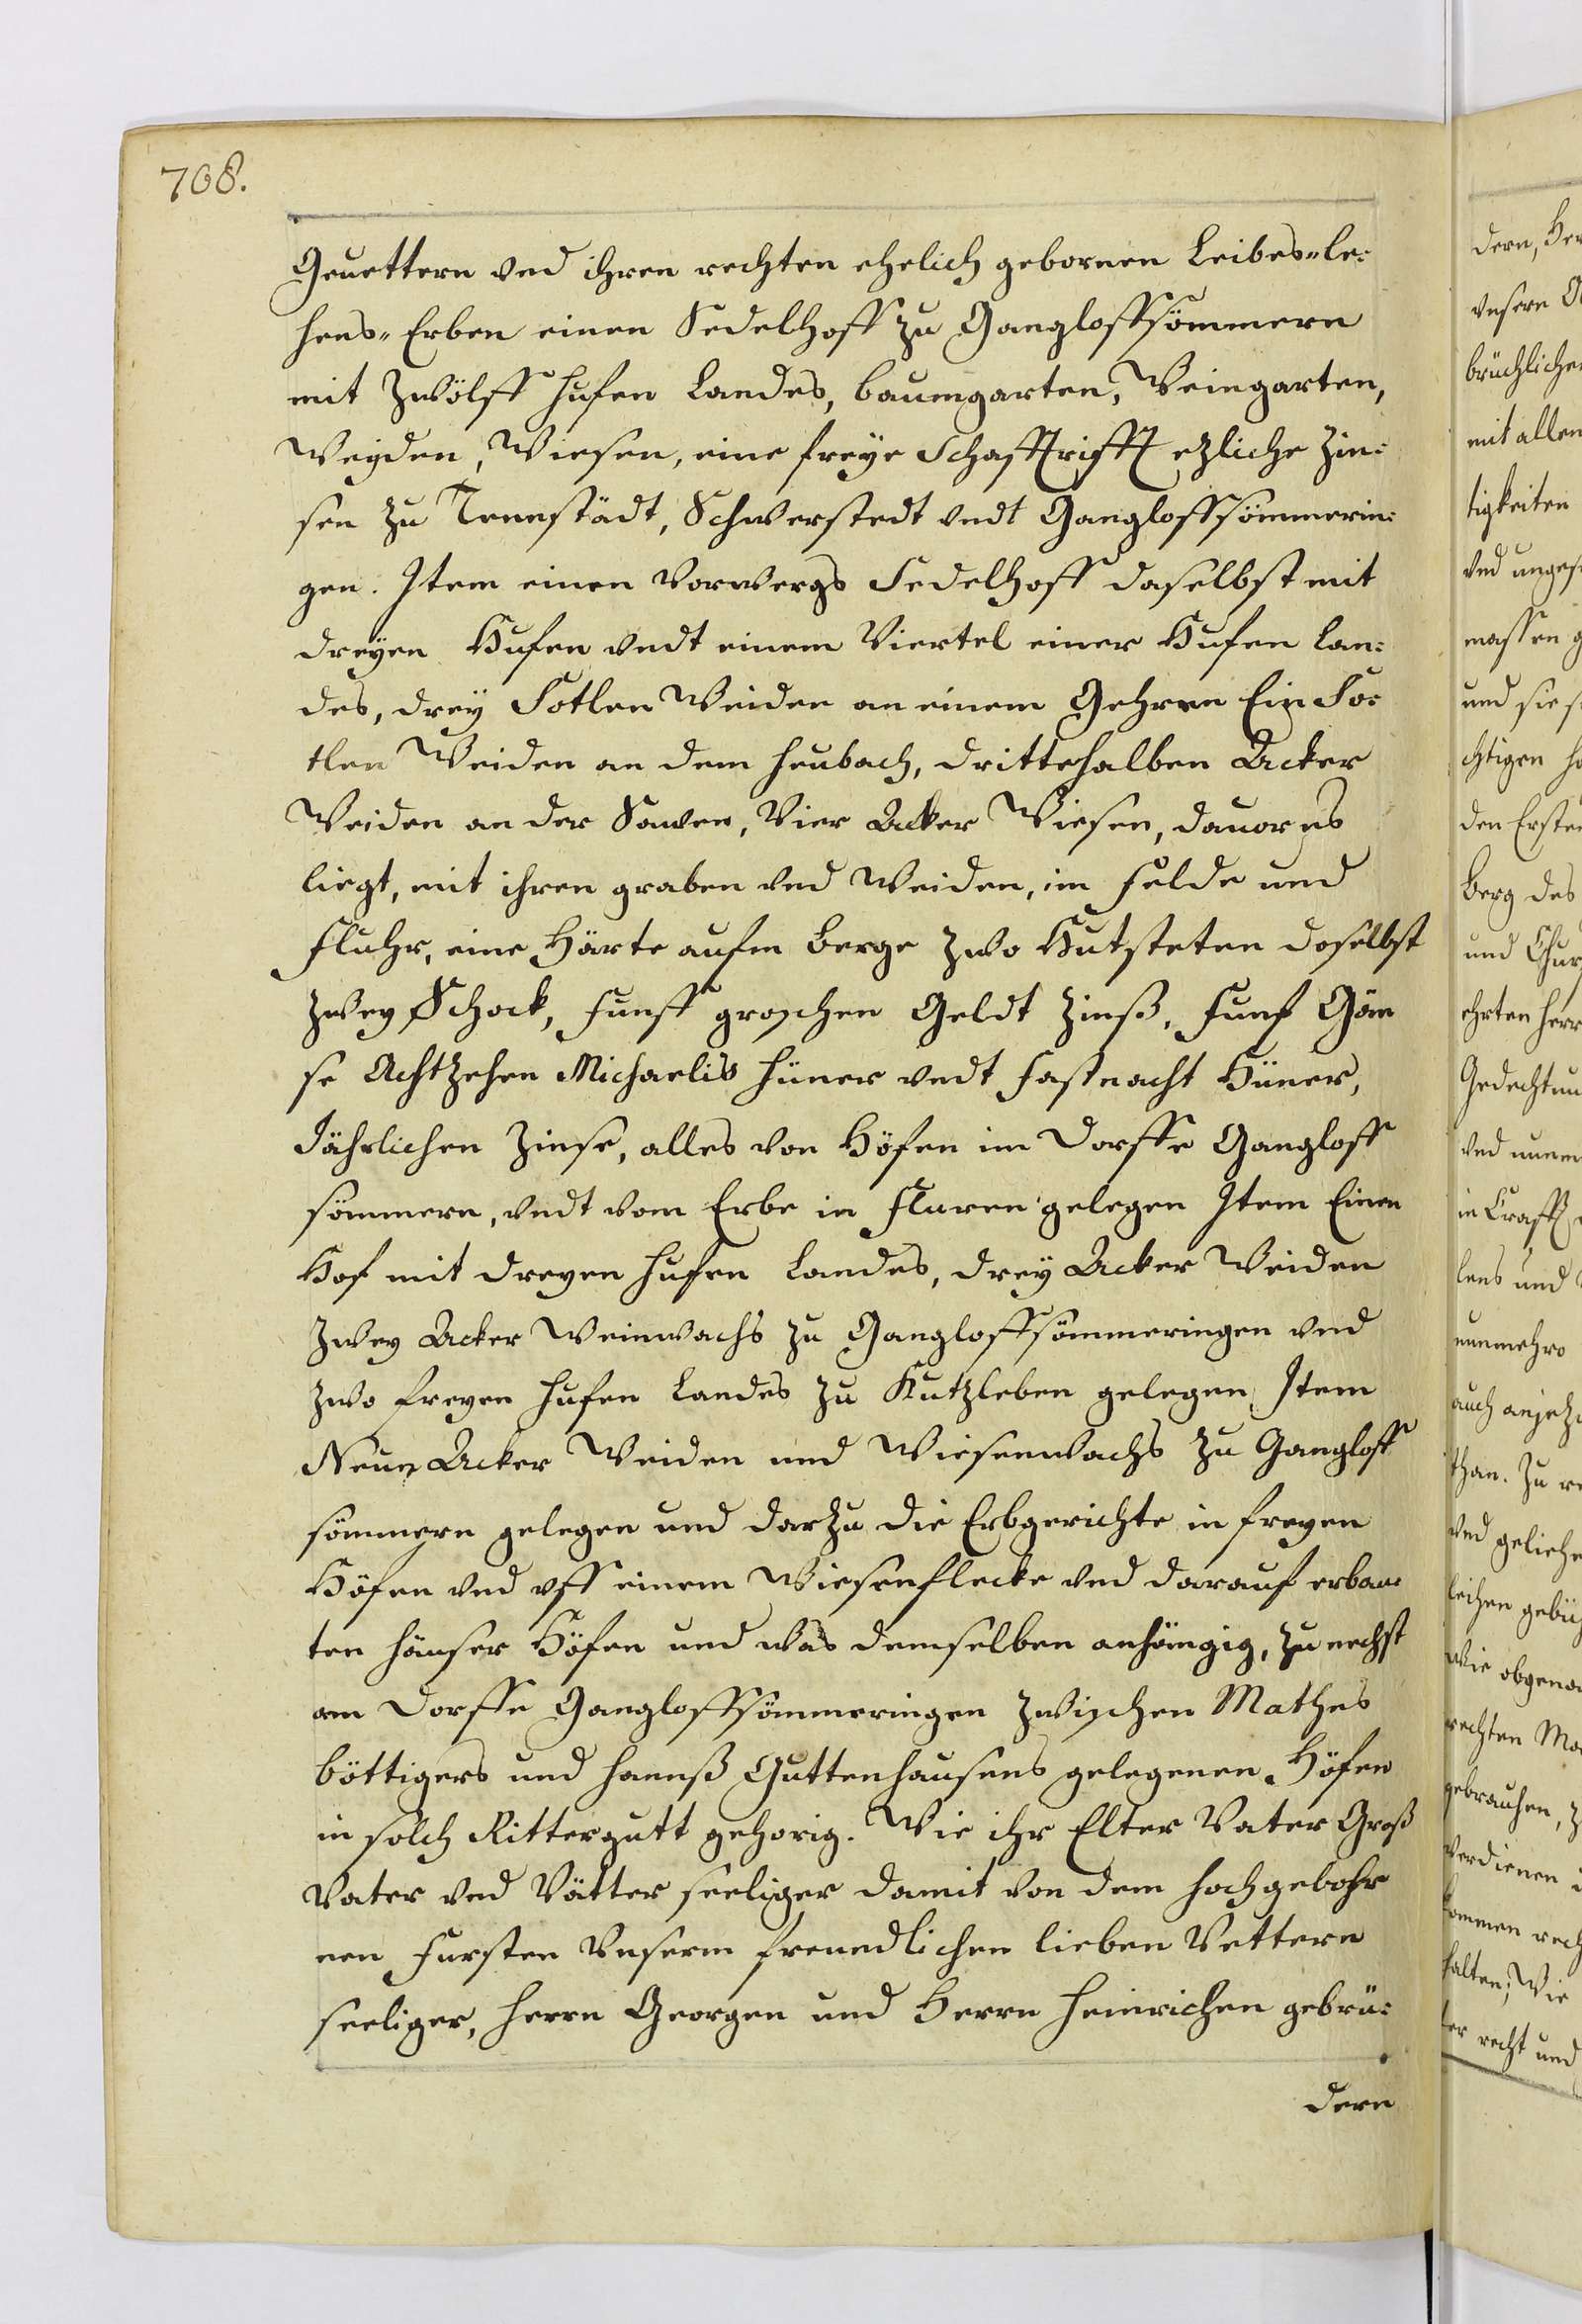 708.
Geuettern vnd ihren rechten ehelich gebornen Leibes-Le:
hens-Erben einen Sedelhoff zu Gangloffsömmern
mit Zwölff hufen Landes, baumgarten, Weingarten,
Weyden, Wiesen, eine freye Schafftrifft ezliche Zin:
sen zu Tennstädt, Schwerstedt vndt Gangloffsömmerin:
gen. Item einen Vorwergs Sedelhoff daselbst mit
dreyen Hufen vndt einem Viertel einer Hufen Lan:
des, drey Sotlen Weiden an einem Gehren Ein So:
tlen Weiden an dem heubach, drittehalben Acker
Weiden an der Sawen, Vier Acker Wiesen, dauor es
liegt, mit ihren graben vnd Weiden, im felde und
fluhr, eine Härte aufm Berge zwo Hutsteten doselbst
zwey Schock, funff groschen Geldt Zinß, funf Gän
se Achtzehen Michaelis hüner vndt fastnacht Hüner,
Jährlichen Zinse, alles von Höfen im Dorffe Gangloff
sömmern, vndt vom Erbe in fluren gelegen Item Einen
Hof mit dreyen hufen Landes, drey Acker Weiden
zwey Acker Weinwachs zu Gangloffsömmeringen vnd
zwo freyen hufen Landes zu Kutzleben gelegen Item
Neun Acker Weiden und Wiesenwachs zu Gangloff
sömmern gelegen und darzu die Erbgerichte in freyen
Höfen vnd vff einem Wiesenflecke vnd darauf erbau:
ten häuser Höfen und was demselben anhängig, zu nechst
am Dorffe Gangloffsömmeringen zwischen Mathes
böttigers und hannß Guttenhausens gelegenen Höfen
in solch Rittergutt gehorig. Wie ihr Elter Vater Groß
Vater vnd Vätter seeliger damit von dem hochgebohr
nen Fursten Vnserm freundlichen lieben Vettern
seeliger, herrn Georgen und Herrn heinrichen gebrü:
dern
dern,
vnsern
brüchliche
mit allen
tigkeiten
vnd
massen
und sie
chtigen
den Erste
Berg des
und Chur
ehrten herr
Gedechtnu
vnd
in Crafft
lens und
nunmehro
auch anjetz
than. Zu
vnd geliehe
leihen gebü
wie obgena
rechten Ma
gebrauchen,
verdienen
kommen rech
halten, Wie
ter recht und